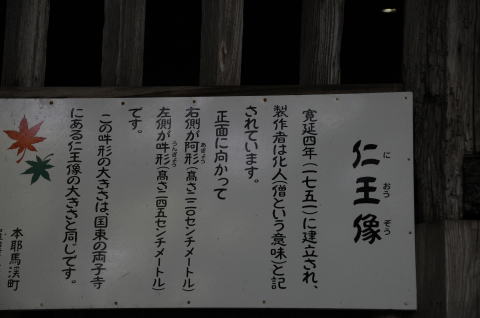 仁王像
におうぞう
寛延四年(一七五一)に建立され、
製作者は化人(僧という意味)と記
されています。
正面に向かって
右側が阿形(高さ二二〇センチメートル)
あぎょう
左側が吽形(高さ二四五センチメートル)
うんぎょう
です。
この吽形の大きさは、国東の両子寺
にある仁王像の大きさと同じです。
本耶馬渓町